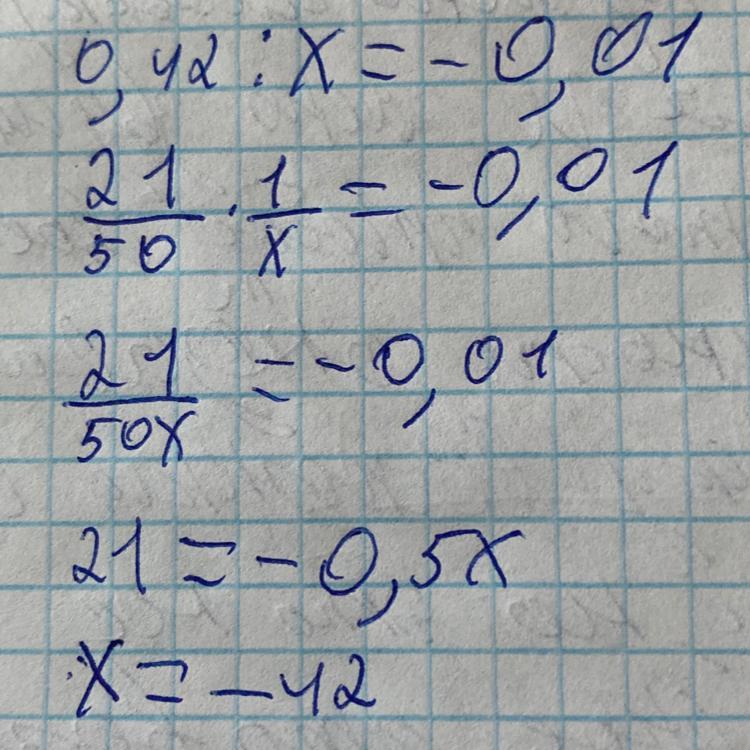 0,42 : x = -0,01
21/50 · 1/x = -0,01
21/50x = -0,01
21 = -0,5x
x = -42